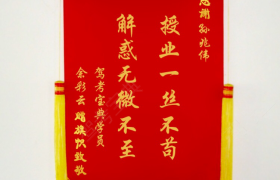 感谢孙兆伟
授业一丝不苟
解惑无微不至
驾考宝典学员
余彩云赠旗致敬